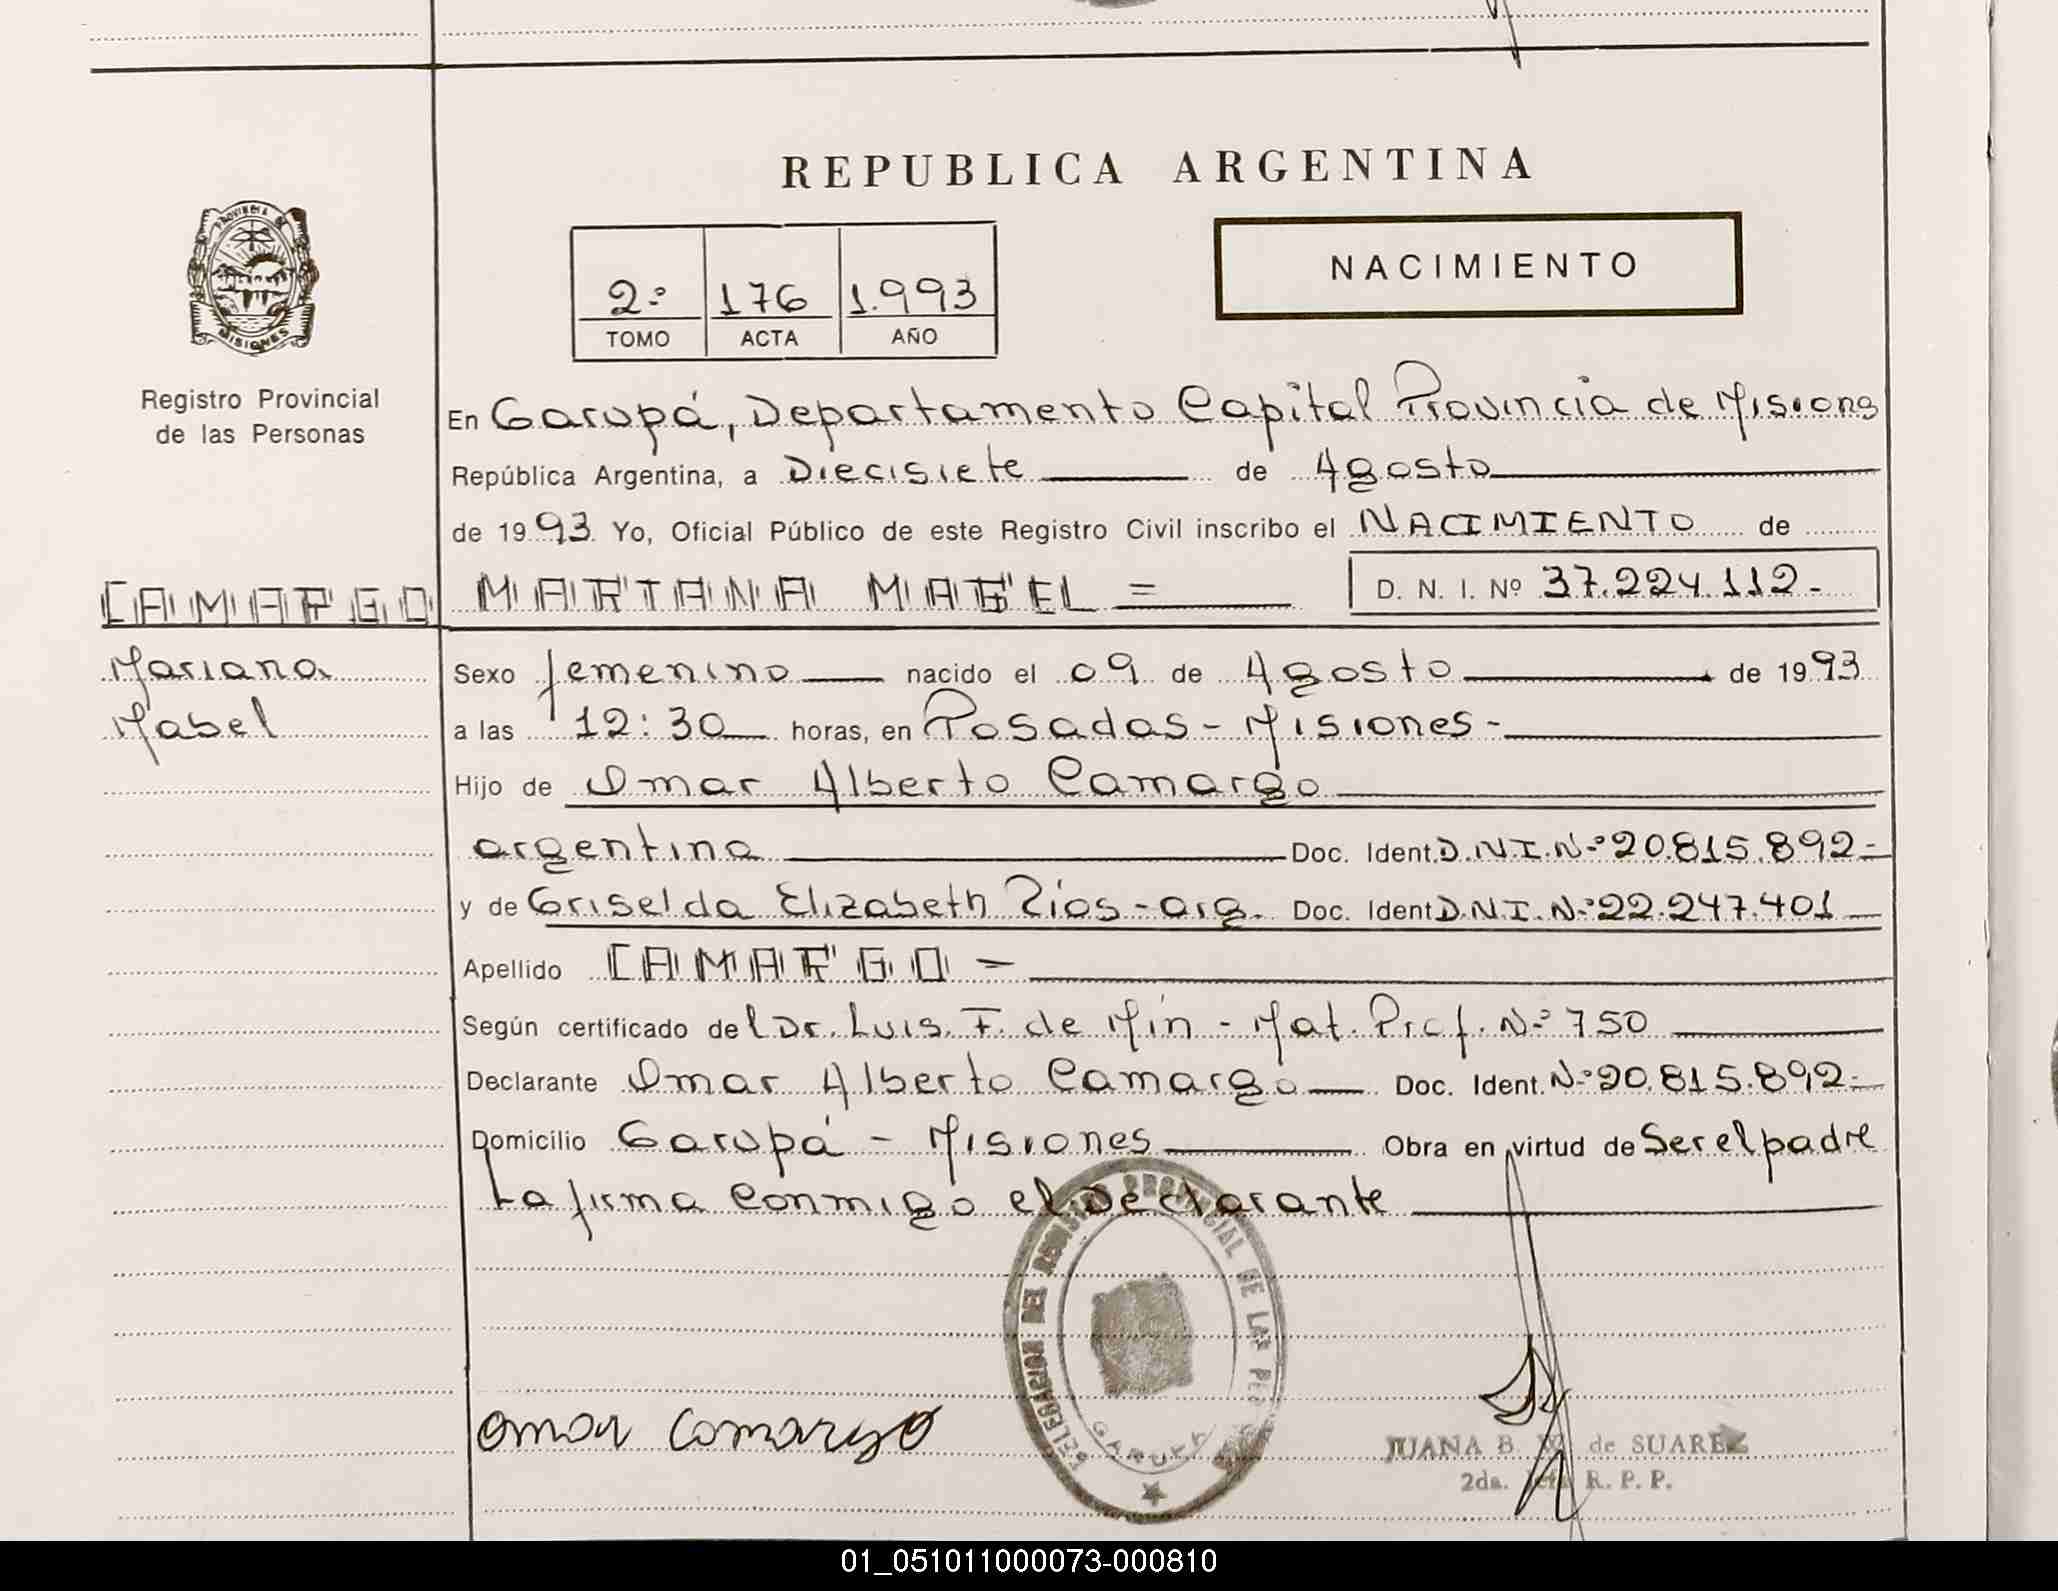 REPUBLICA ARGENTINA
PROVINCIA DE
MISIONES
Registro Provincial
de las Personas
2º 176 1.993
TOMO ACTA AÑO
NACIMIENTO
En Garupá, Departamento Capital Provincia de Misiones
República Argentina, a Diecisiete de Agosto
de 1993 Yo, Oficial Público de este Registro Civil inscribo el NACIMIENTO de
CAMARGO
Mariana
Mabel
MARIANA MABEL = D. N. I. Nº 37.224.112-
Sexo femenino nacido el 09 de Agosto de 1993
a las 12:30 horas, en Posadas - Misiones -
Hijo de Omar Alberto Camargo
argentina Doc. Ident. D.N.I. Nº 20.815.892-
y de Griselda Elizabeth Ríos - arg. Doc. Ident. D.N.I. Nº 22.247.401
Apellido CAMARGO -
Según certificado del Dr. Luis F. de Mín - Mat. Prof. Nº 750
Declarante Omar Alberto Camargo Doc. Ident. Nº 20.815.892-
Domicilio Garupá - Misiones Obra en virtud de Ser el padre
La firma conmigo el Declarante
DELEGACION DEL REGISTRO PROVINCIAL DE LAS
GARUPA
Omar Camargo
JUANA B. de SUAREZ
2da. Jefa R. P. P.
01_051011000073-000810